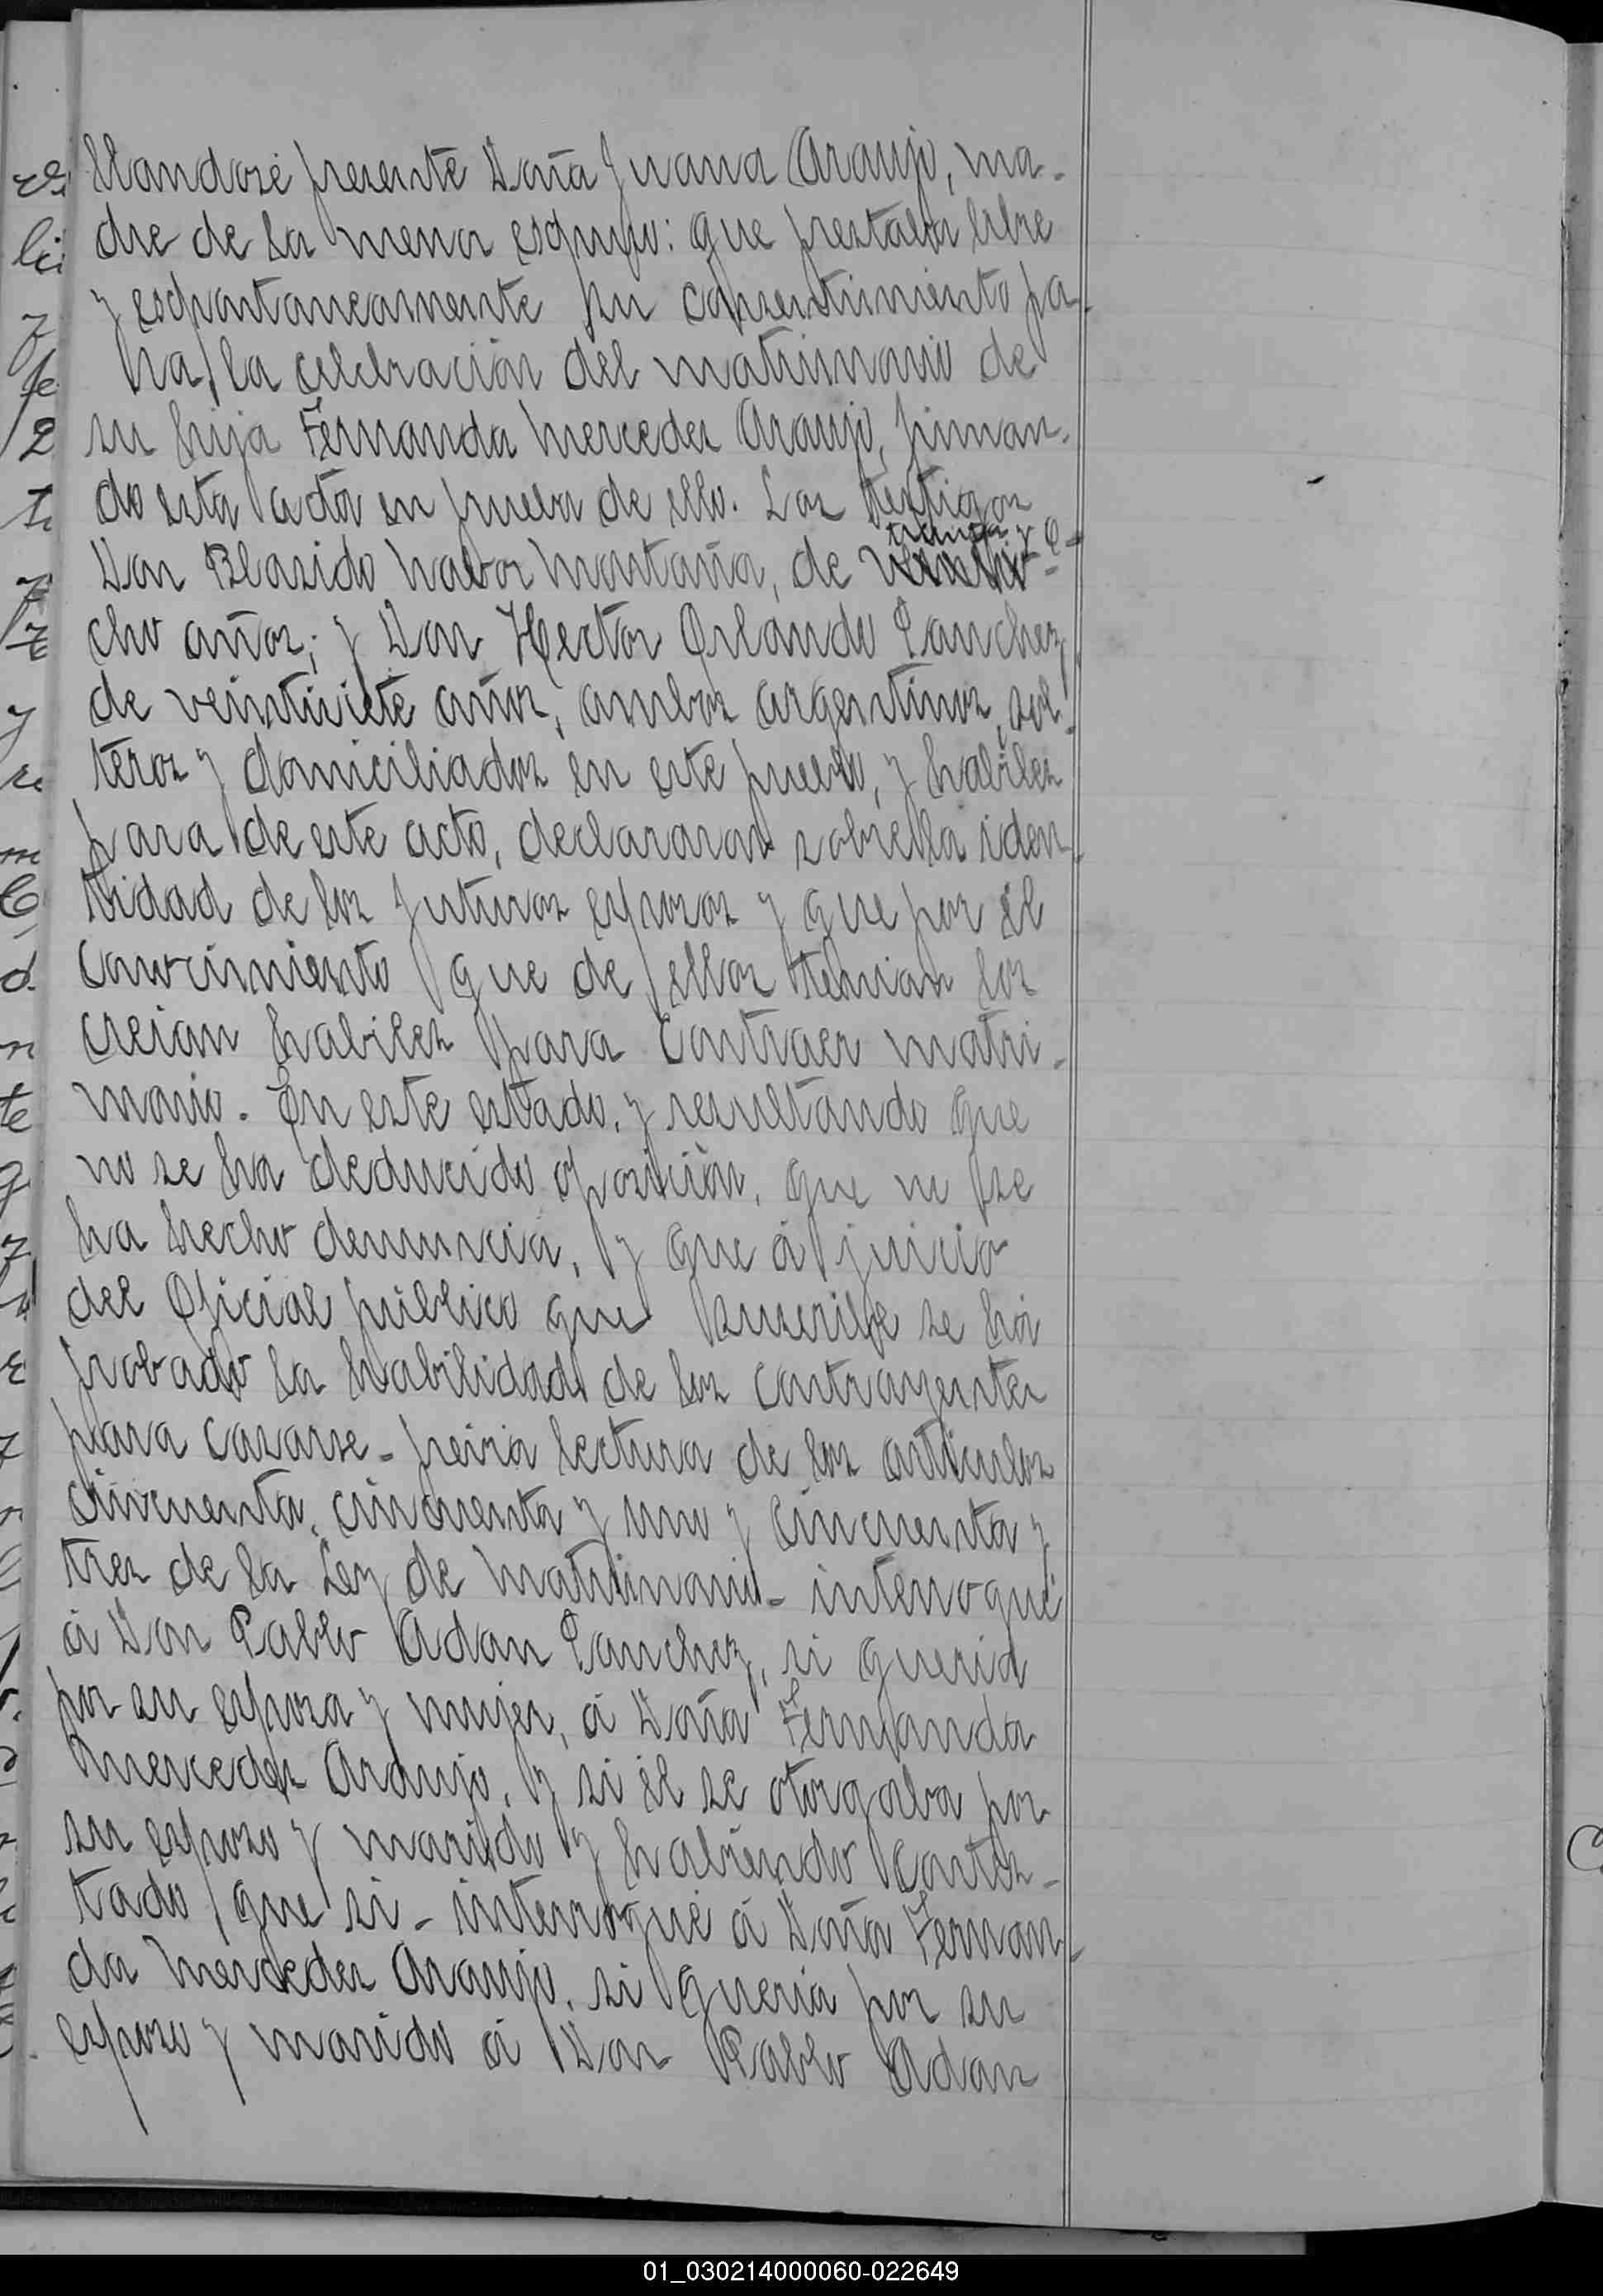 llandose presente Doña Juana Araujo, ma-
dre de la menor espuso: que prestaba libre
y espontaneamente su consentimiento pa-
ra la celebración del matrimonio de
su hija Fernanda Mercedes Araujo, firman-
do esta acta en prueba de ello. Los testigos
treinta y o-
Don Plasido Montaña, de
cho años; y Don Hector Orlando Sanchez,
de veintisiete años, ambos argentinos, sol-
teros y domiciliados en este pueblo, y habiles
para de este acto, declararon sobre la iden-
tidad de los futuros esposos y que por el
conocimiento que de ellos tenian los
creian habiles para contraer matri-
monio. En este estado, y resultando que
no se ha deducido oposición, que no se
ha hecho denuncia, y que á juicio
del Oficial público que suscribe se ha
probado la habilidad de los contrayentes
para casarse - previa lectura de los articulos
cincuenta, cincuenta y uno y cincuenta y
tres de la Ley de Matrimonio - interrogué
á Don Pablo Adan Sanchez, si queria
por su esposa y mujer, á Doña Fernanda
Mercedes Araujo, y si él se otorgaba por
su esposo y marido y habiendo contes-
tado que si - interrogué á Doña Fernan-
da Mercedes Araujo, si queria por su
esposo y marido á Don Pablo Adan
01_030214000060-022649